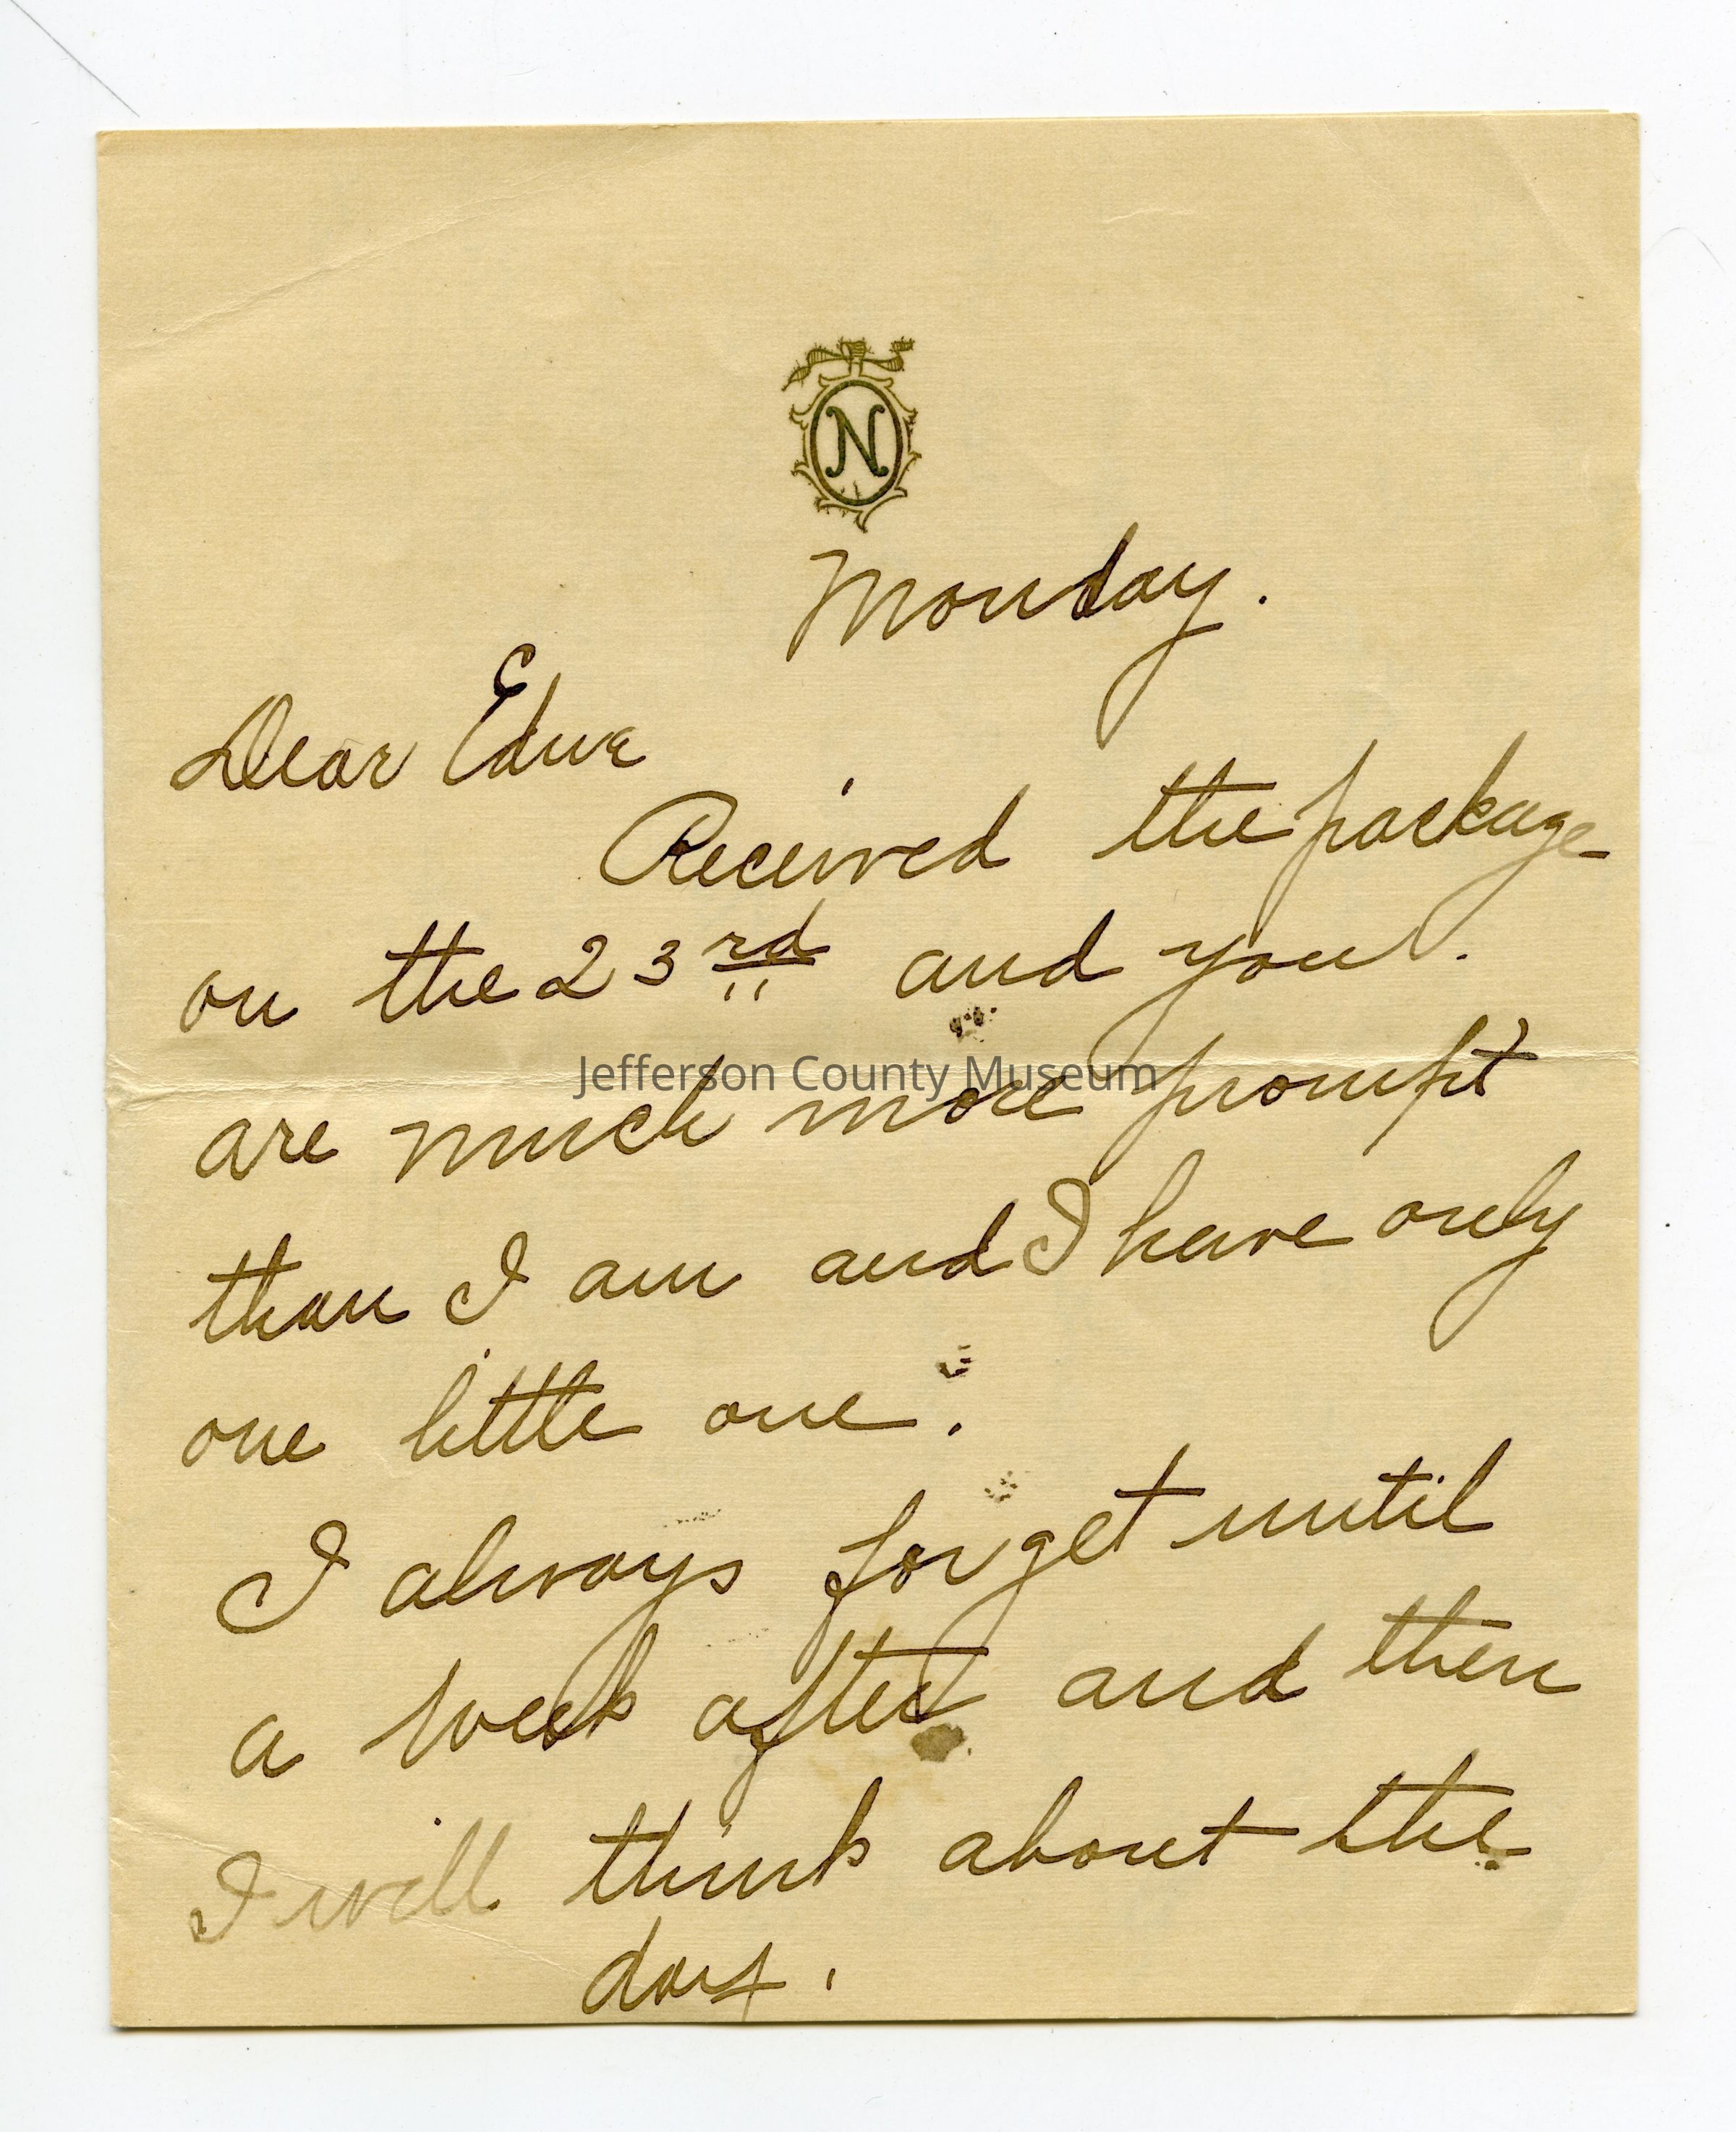 N
Monday.
Dear Edna
Received the package
on the 23rd and you.
Jefferson County Museum
are much more prompt
than I am and I have only
one little one.
I always forget until
a week after and then
I will think about the
day.